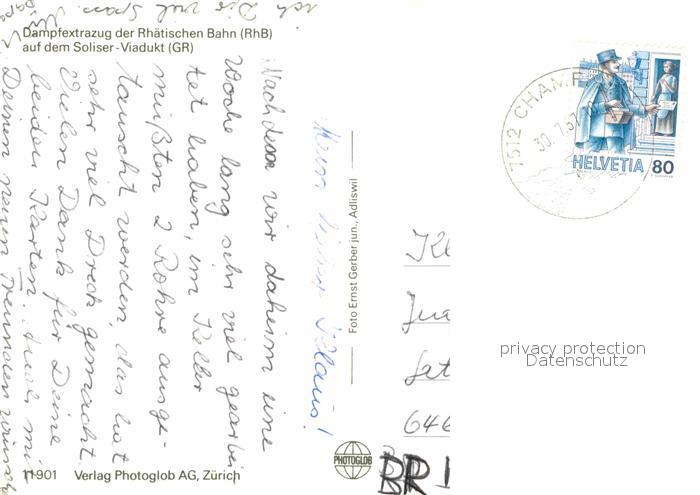 Dampfextrazug der Rhätischen Bahn (RhB)
auf dem Soliser-Viadukt (GR)
Mein lieber Klaus!
Nachdem wir daheim eine
Woche lang sehr viel gearbei
tet haben, im Keller
mußten 2 Rohre ausge-
tauscht werden, das hat
sehr viel Dreck gemacht.
Vielen Dank für Deine
beiden Karten. Auch mit
Deinen neuen Freunden wünsch
ich Dir viel Spaß.
Foto Ernst Gerber jun., Adliswil
PHOTOGLOB
11 901 Verlag Photoglob AG, Zürich
7512 CHAMF
30.7.87
HELVETIA 80
Kl
646
BR
privacy protection
Datenschutz